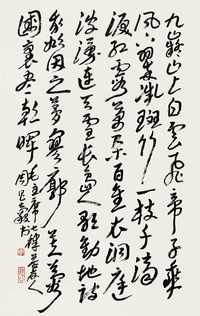 九嶷山上白雲飛帝子乘
風下翠微斑竹一枝千滴
淚紅霞萬朵百重衣洞庭
波湧連天雪長島人歌動地詩
我欲因之夢寥廓芙蓉
國裏盡朝暉 毛主席七律答友人
周